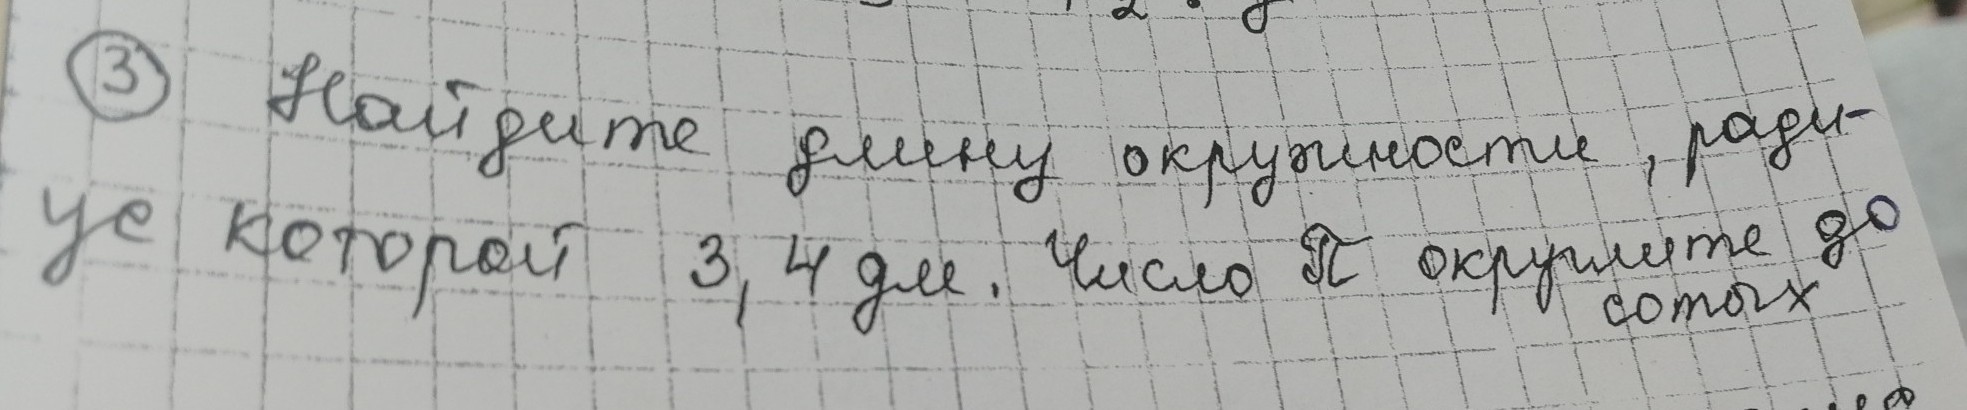 ③ Найдите длину окружности, ради-
ус которой 3,4 дм. Число π округлите до
сотых